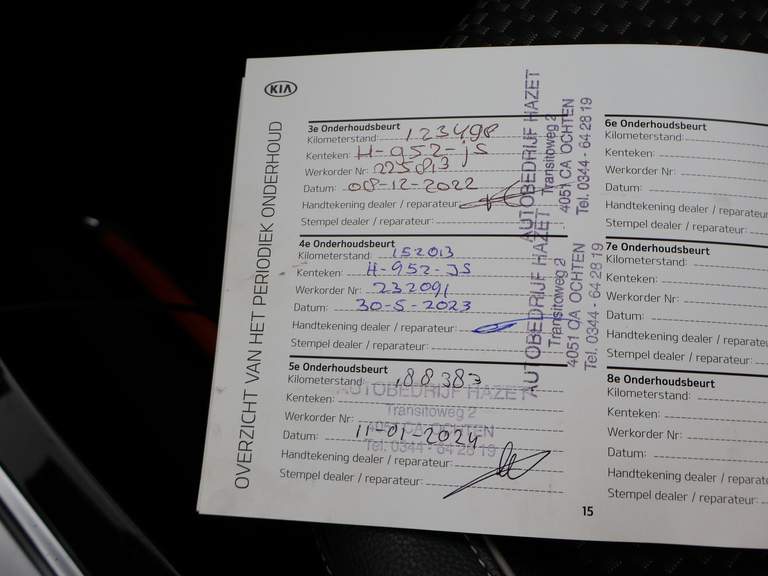 KIA
OVERZICHT VAN HET PERIODIEK ONDERHOUD
3e Onderhoudsbeurt
Kilometerstand: 123498
Kenteken: H-952-JS
Werkorder Nr: 225813
Datum: 08-12-2022
Handtekening dealer / reparateur:
Stempel dealer / reparateur:
AUTOBEDRIJF HAZET
Transitoweg 2
4051 CA OCHTEN
Tel. 0344 - 64 28 19
4e Onderhoudsbeurt
Kilometerstand: 152013
Kenteken: H-952-JS
Werkorder Nr: 232091
Datum: 30-5-2023
Handtekening dealer / reparateur:
Stempel dealer / reparateur:
AUTOBEDRIJF HAZET
Transitoweg 2
4051 CA OCHTEN
Tel. 0344 - 64 28 19
5e Onderhoudsbeurt
Kilometerstand: 188383
Kenteken:
Werkorder Nr:
Datum: 11-01-2024
Handtekening dealer / reparateur:
Stempel dealer / reparateur:
AUTOBEDRIJF HAZET
Transitoweg 2
4051 CA OCHTEN
Tel. 0344 - 64 28 19
6e Onderhoudsbeurt
Kilometerstand:
Kenteken:
Werkorder Nr:
Datum:
Handtekening dealer / reparateur
Stempel dealer / reparateur:
7e Onderhoudsbeurt
Kilometerstand:
Kenteken:
Werkorder Nr:
Datum:
Handtekening dealer / reparateur
Stempel dealer / reparateur:
8e Onderhoudsbeurt
Kilometerstand:
Kenteken:
Werkorder Nr:
Datum:
Handtekening dealer / reparateur
Stempel dealer / reparateur:
15